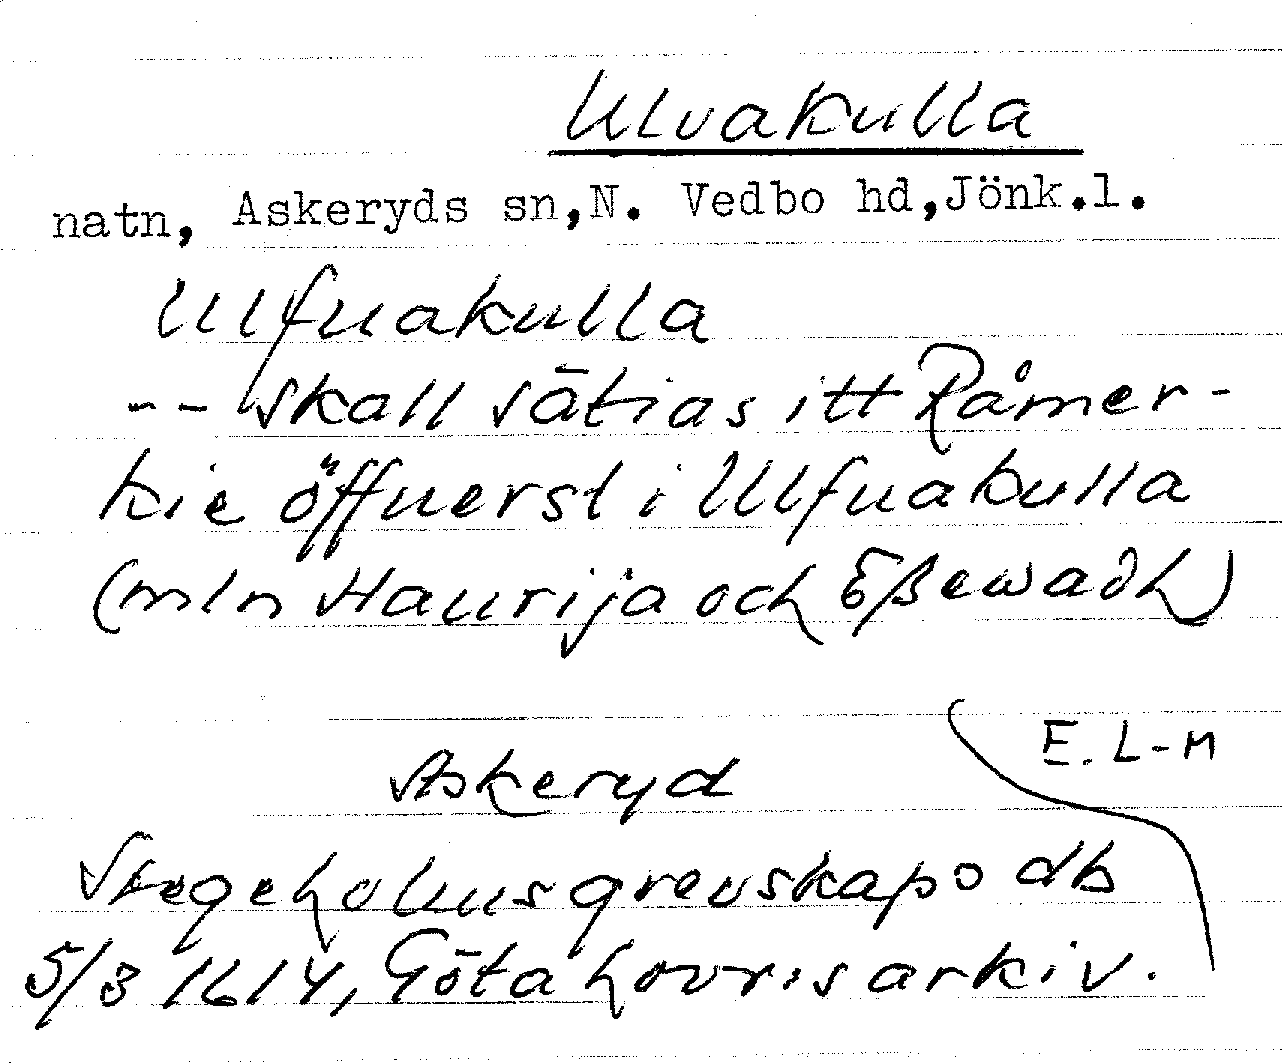 Ulvakulla
natn, Askeryds sn, N. Vedbo hd, Jönk.l.
Ulfuakulla
-- skall sätias itt Råmer-
kie öffuerst i Ulfuakulla
(mln Haurija och Ößewadh)
E. L-M
Askeryd
Stegeholms grevskaps db
5/3 1614, Göta hovr:s arkiv.